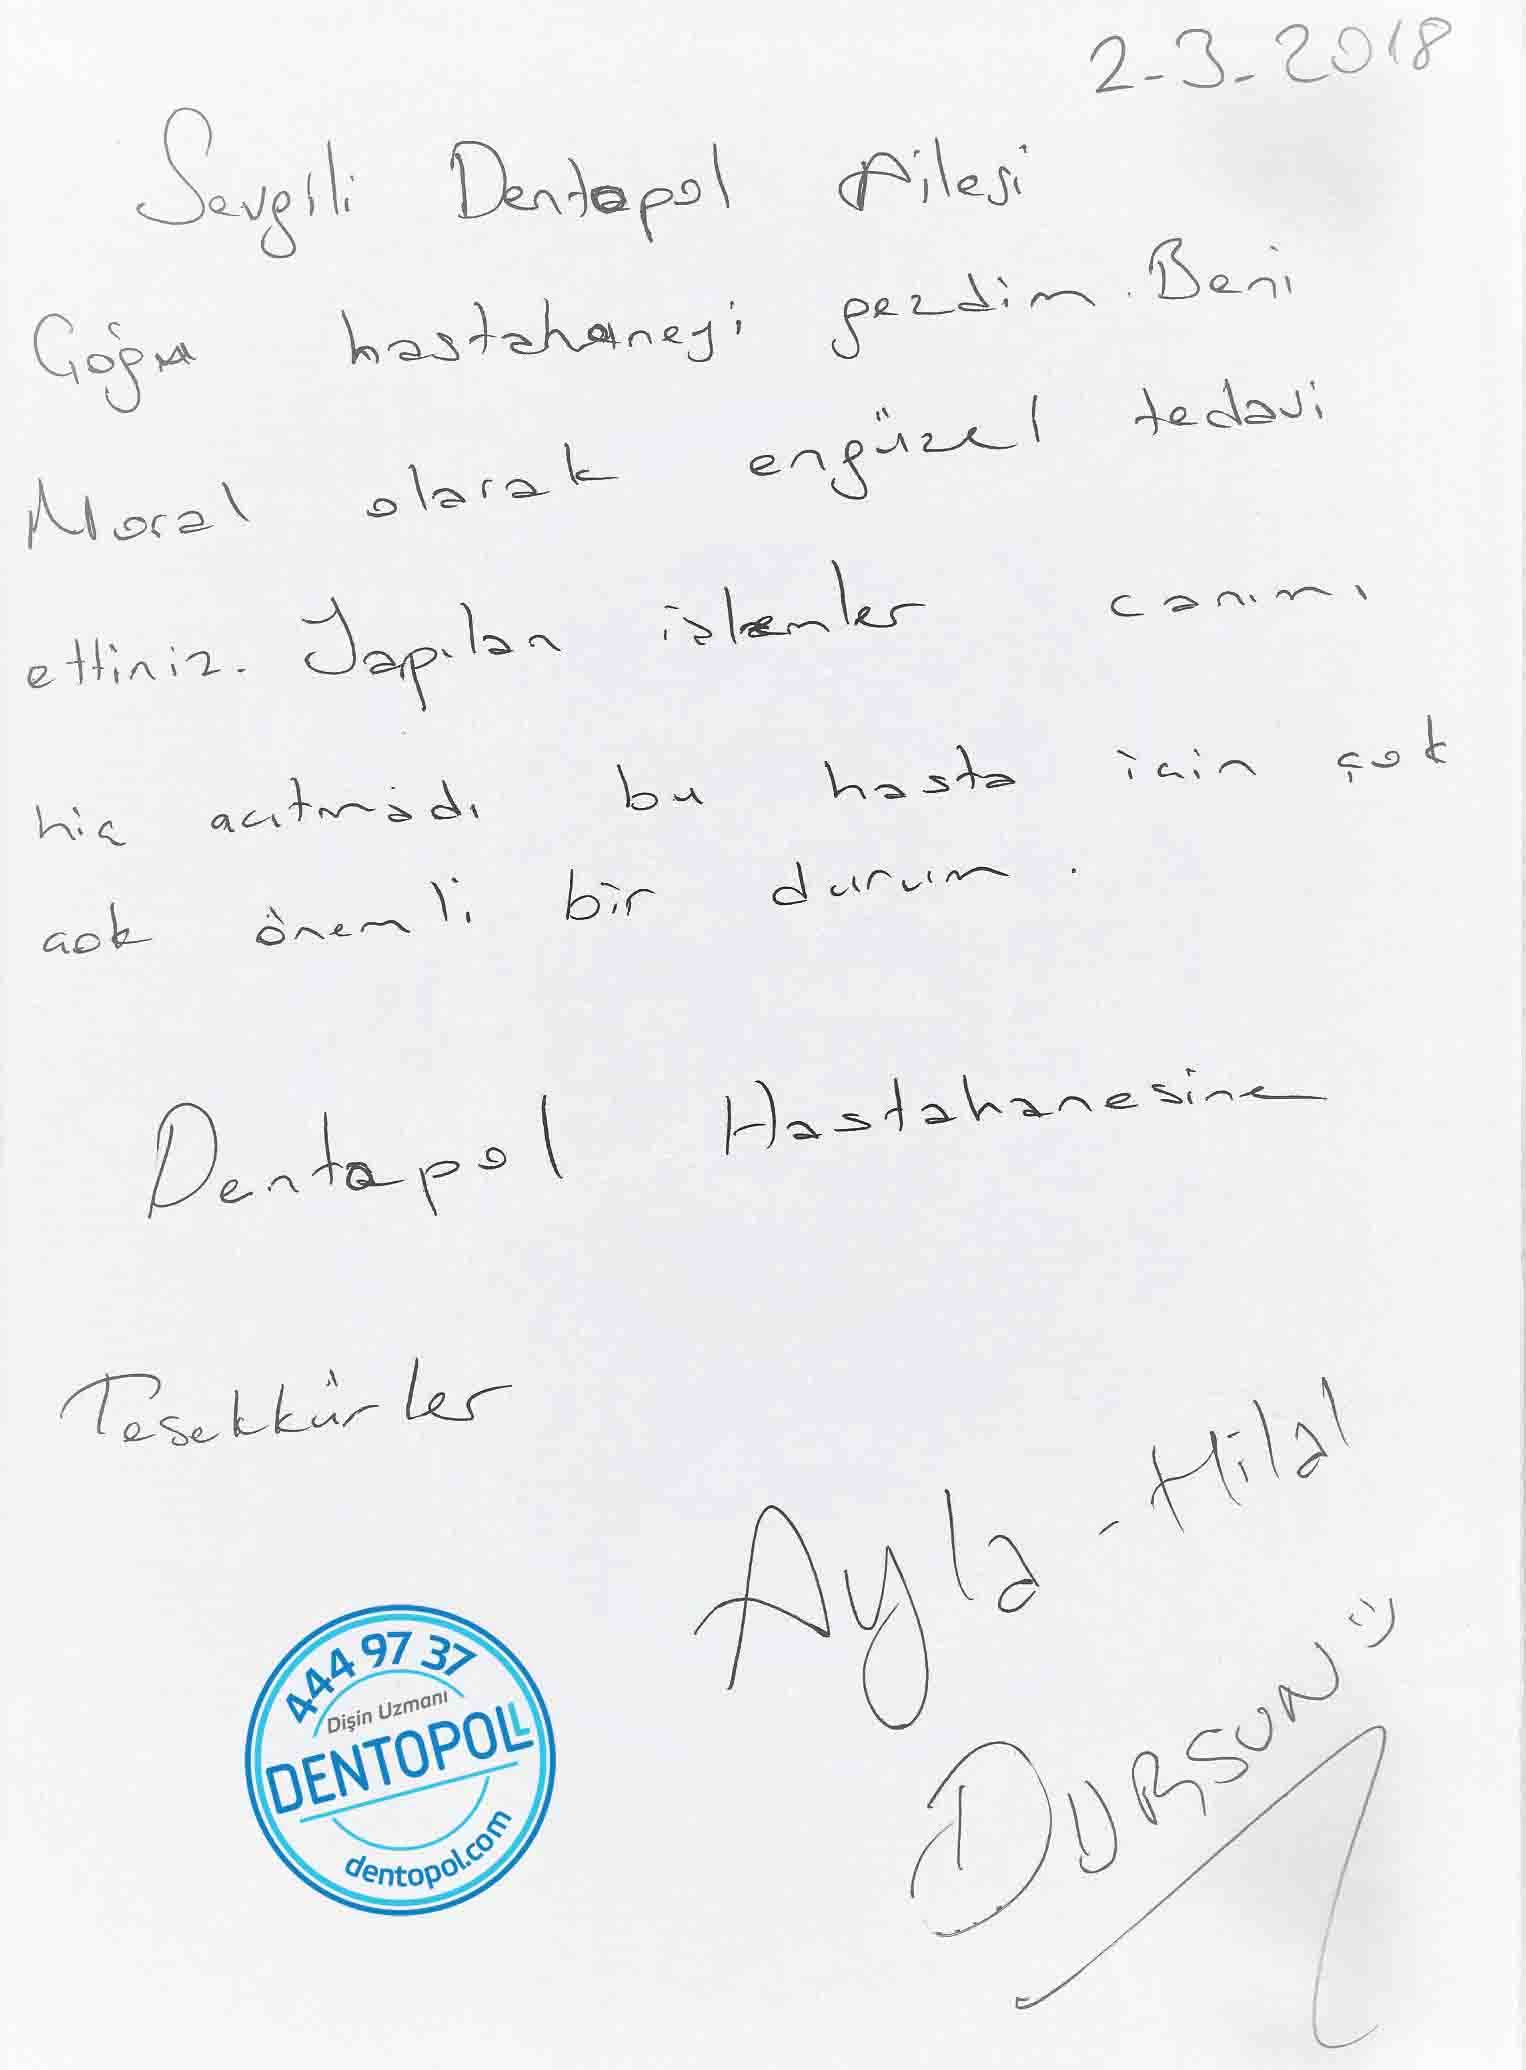 2-3-2018
Sevgili Dentopol Ailesi
Çoğu hastahaneyi gezdim. Beni
Moral olarak engüzel tedavi
ettiniz. Yapılan işlemler canımı
hiç acıtmadı bu hasta için çok
çok önemli bir durum.
Dentopol Hastahanesine
Teşekkürler
Ayla - Hilal
DURSUN :)
444 97 37
Dişin Uzmanı
DENTOPOL
dentopol.com